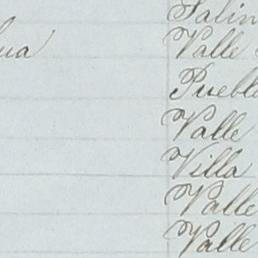 Salin
ua Valle
Puebl
Valle
Villa
Valle
Valle